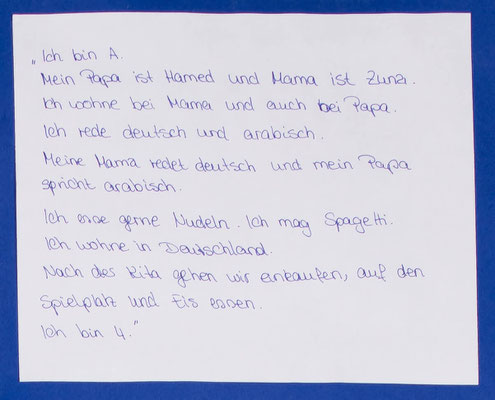 „Ich bin A.
Mein Papa ist Hamed und Mama ist Zunzi.
Ich wohne bei Mama und auch bei Papa.
Ich rede deutsch und arabisch.
Meine Mama redet deutsch und mein Papa
spricht arabisch.
Ich esse gerne Nudeln. Ich mag Spagetti.
Ich wohne in Deutschland.
Nach des Kita gehen wir einkaufen, auf den
Spielplatz und Eis essen.
Ich bin 4."